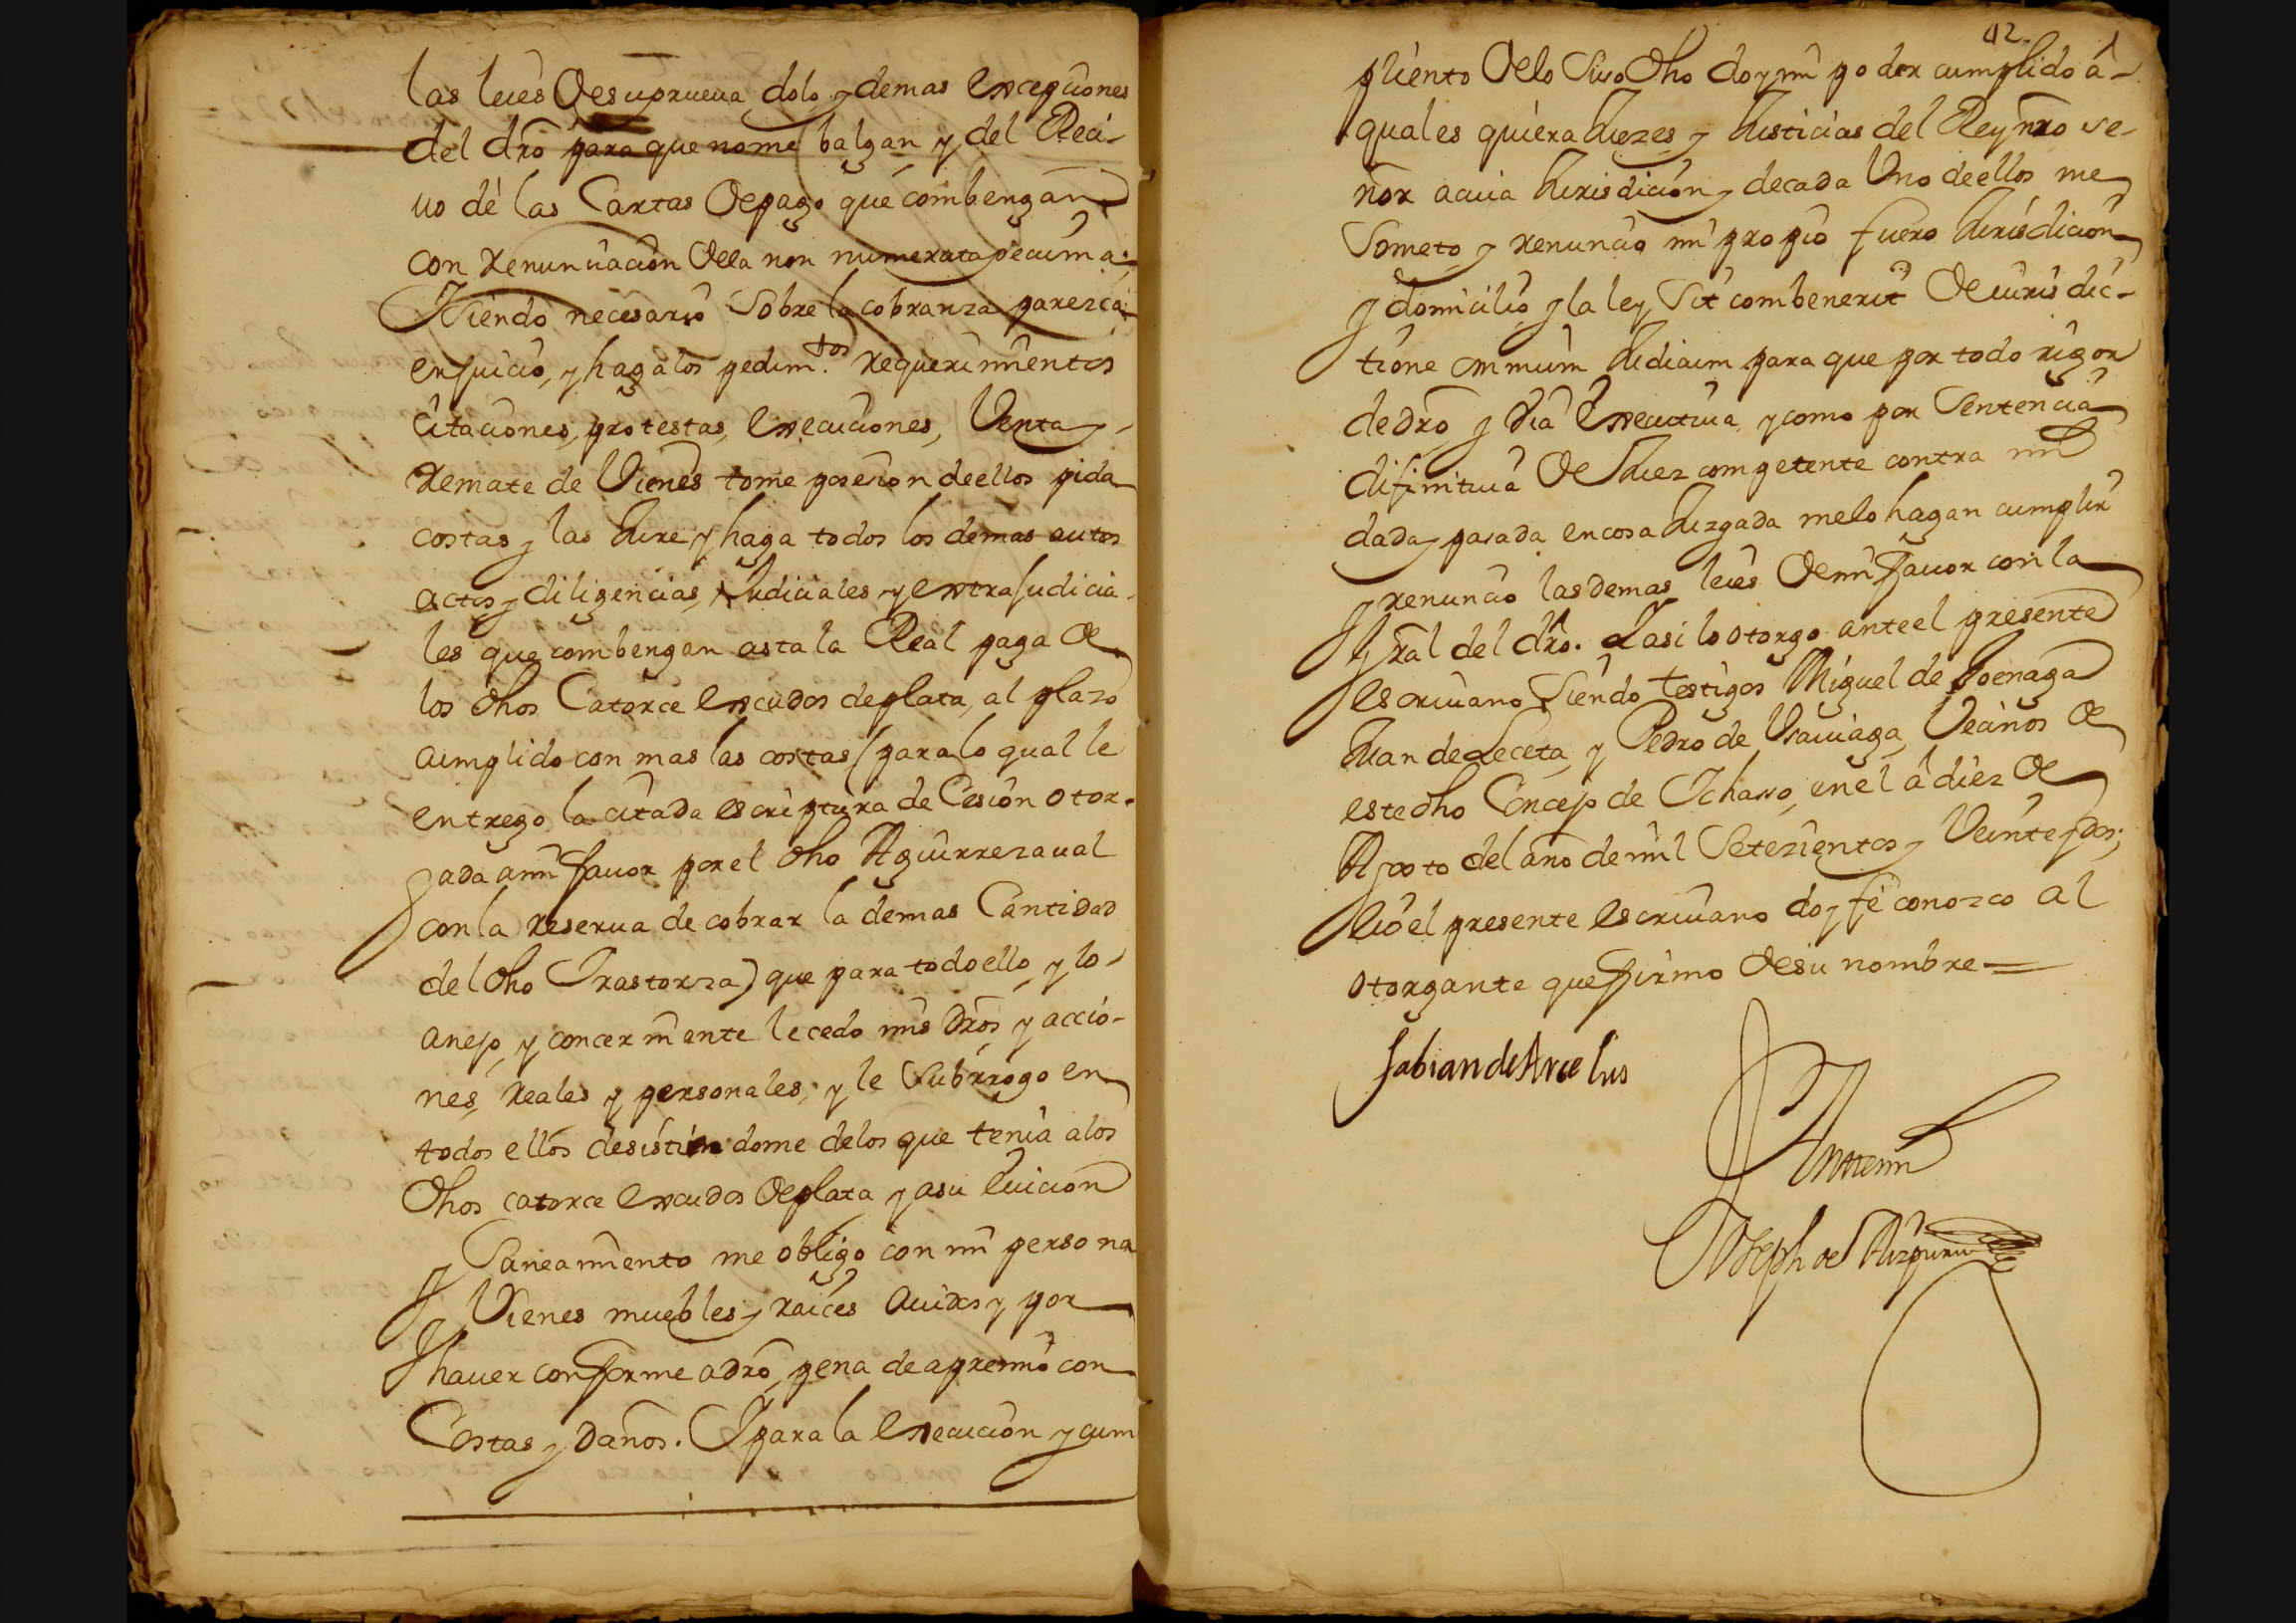 las leies de su prueua dolo, y demas excepciones
del dro para que no me balgan, y del Reci-
uo dé las Cartas de pago que combengan
con renunciacion dela non numerata pecunia;
Y siendo necesario Sobre la cobranza parezca
en juicio, y haga los pedim.tos requerimientos
citaciones, protestas, execuciones, Venta y
remate de Vienes tome posesion de ellos pida
costas y las Jure, y haga todos los demas autos
actos y diligencias, Judiciales, y extrajudicia-
les que combengan asta la Real paga de
los dhos Catorce escudos de plata, al plazo
cumplido con mas las costas (para lo qual le
entrego la citada escriptura de Cesion otor-
gada a mi fauor por el dho Aguirrezaual
con la reserua de cobrar la demas Cantidad
del dho Irastorza) que para todo ello, y lo
anejo, y concerniente le cedo mis dros, y accio-
nes, reales y personales, y le Subrrogo en
todos ellos desistiendome delos que tenia a los
dhos catorce escudos de plata, y a su euicion
y Saneamiento me obligo con mi persona
y Vienes muebles y raices auidos y por
hauer conforme a dro, pena de apremio con
Costas y daños. Y para la execucion y cum
42
pliento delo Suso dho doy mi poder cumplido á
quales quiera Juezes y Justicias del Rey nro se-
ñor a cuia Jurisdicion y de cada Uno de ellos me
Someto, y renuncio mi propio fuero Jurisdicion
y domicilio y la ley Sit combenerit de iurisdic-
tione omnium Judicum para que por todo rigor
de dro y Via executiua, y como por Sentencia
difinitiua de Juez competente contra mi
dada y pasada en cosa Juzgada me lo hagan cumplir
y renuncio las demas leies de mi fauor con la
gral del dro. Y asi lo otorgo ante el presente
escriuano Siendo testigos Miguel de Goenaga
Juan de Leceta, y Pedro de Usauiaga, Vecinos de
este dho Concejo de Ichaso, en el á diez de
Agosto del año de mil Setezientos y Veinte y dos,
E io el presente escriuano doy fé conozco al
otorgante que firmo de su nombre =
fabian de Arcelus
Ante mi
Joseph de Aizpuru